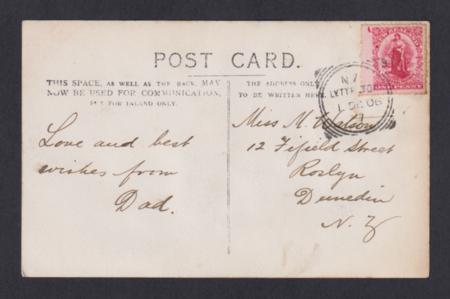 POST CARD.
THIS SPACE, AS WELL AS THE BACK, MAY
NOW BE USED FOR COMMUNICATION,
BUT FOR INLAND ONLY.
THE ADDRESS ONLY
TO BE WRITTEN HERE.
LYTTELTON
1 DE 06
Love and best
wishes from
Dad.
Miss N. Watson
12 Fifield Street
Roslyn
Dunedin
N. Z